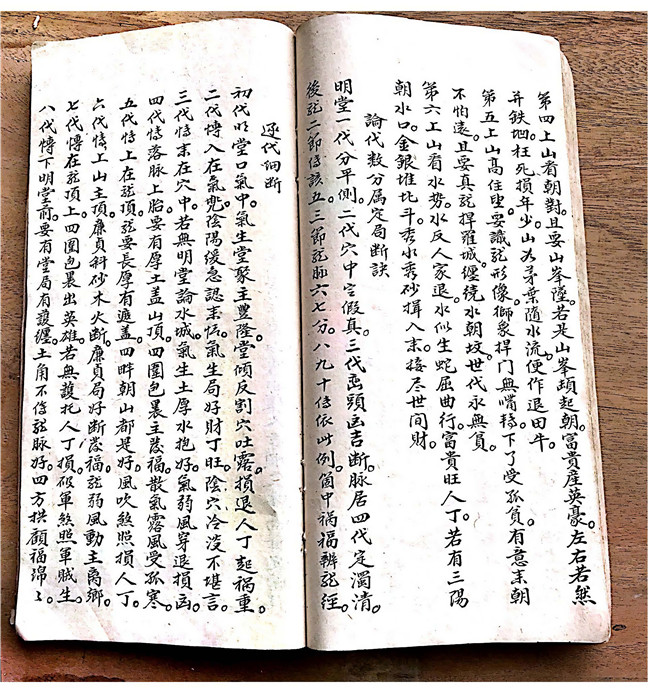 第四上山看朝對。且要山峯隆。若是山峯頭起朝。富貴産英豪。左右若然
并鉄堌。枉死損年少。山为茅葉隨水流。便作退田牛。
第五上山高住望。要識龍形像。獅象捍門無嘴。下了受孤負。有意來朝
不怕遠。且要真龍捍羅城。纏繞水朝坟。世代永無負。
第六上山看水势。水反人家退。水似生蛇屈曲行。富貴旺人丁。若有三陽
朝水口。金銀堆比斗。秀水秀砂揖入来。接尽世间财。
論代数分属定局断訣
明堂一代分平側。二代穴中定假真。三代巒頭凶吉断。脉居四代定濁清。
後龍二節俻該五。三節龍脉六七分。八九十俻依此例。箇中禍福辨龍經。
逐代细断
初代明堂口氣中。氣生堂聚主豊隆。堂傾反割穴吐露。損退人丁起禍重。
二代愽入在氣。陰陽緩急認来㤀。氣生局好財丁旺。陰穴冷没不堪言。
三代愽来在穴中。若無明堂論水城。氣生土厚水抱好。氣弱風穿退損凶。
四代愽落脉上胎。要有厚土盖山頂。四圍包裹主發福。散氣露風受孤寒。
五代愽上在龍頂。龍要長厚有遮盖。四畔朝山都是好。風吹煞照損人丁。
六代愽上山主頂。廉貞科砂木火断。廉貞局好断發福。龍弱風動主离鄉。
七代愽在龍頂上。四圍包裹出英雄。若無護托人丁損。破軍煞照軍賊生。
八代愽下明堂前。要有堂局有護纏。土角不俻龍脉好。四方拱顧福綿〻。